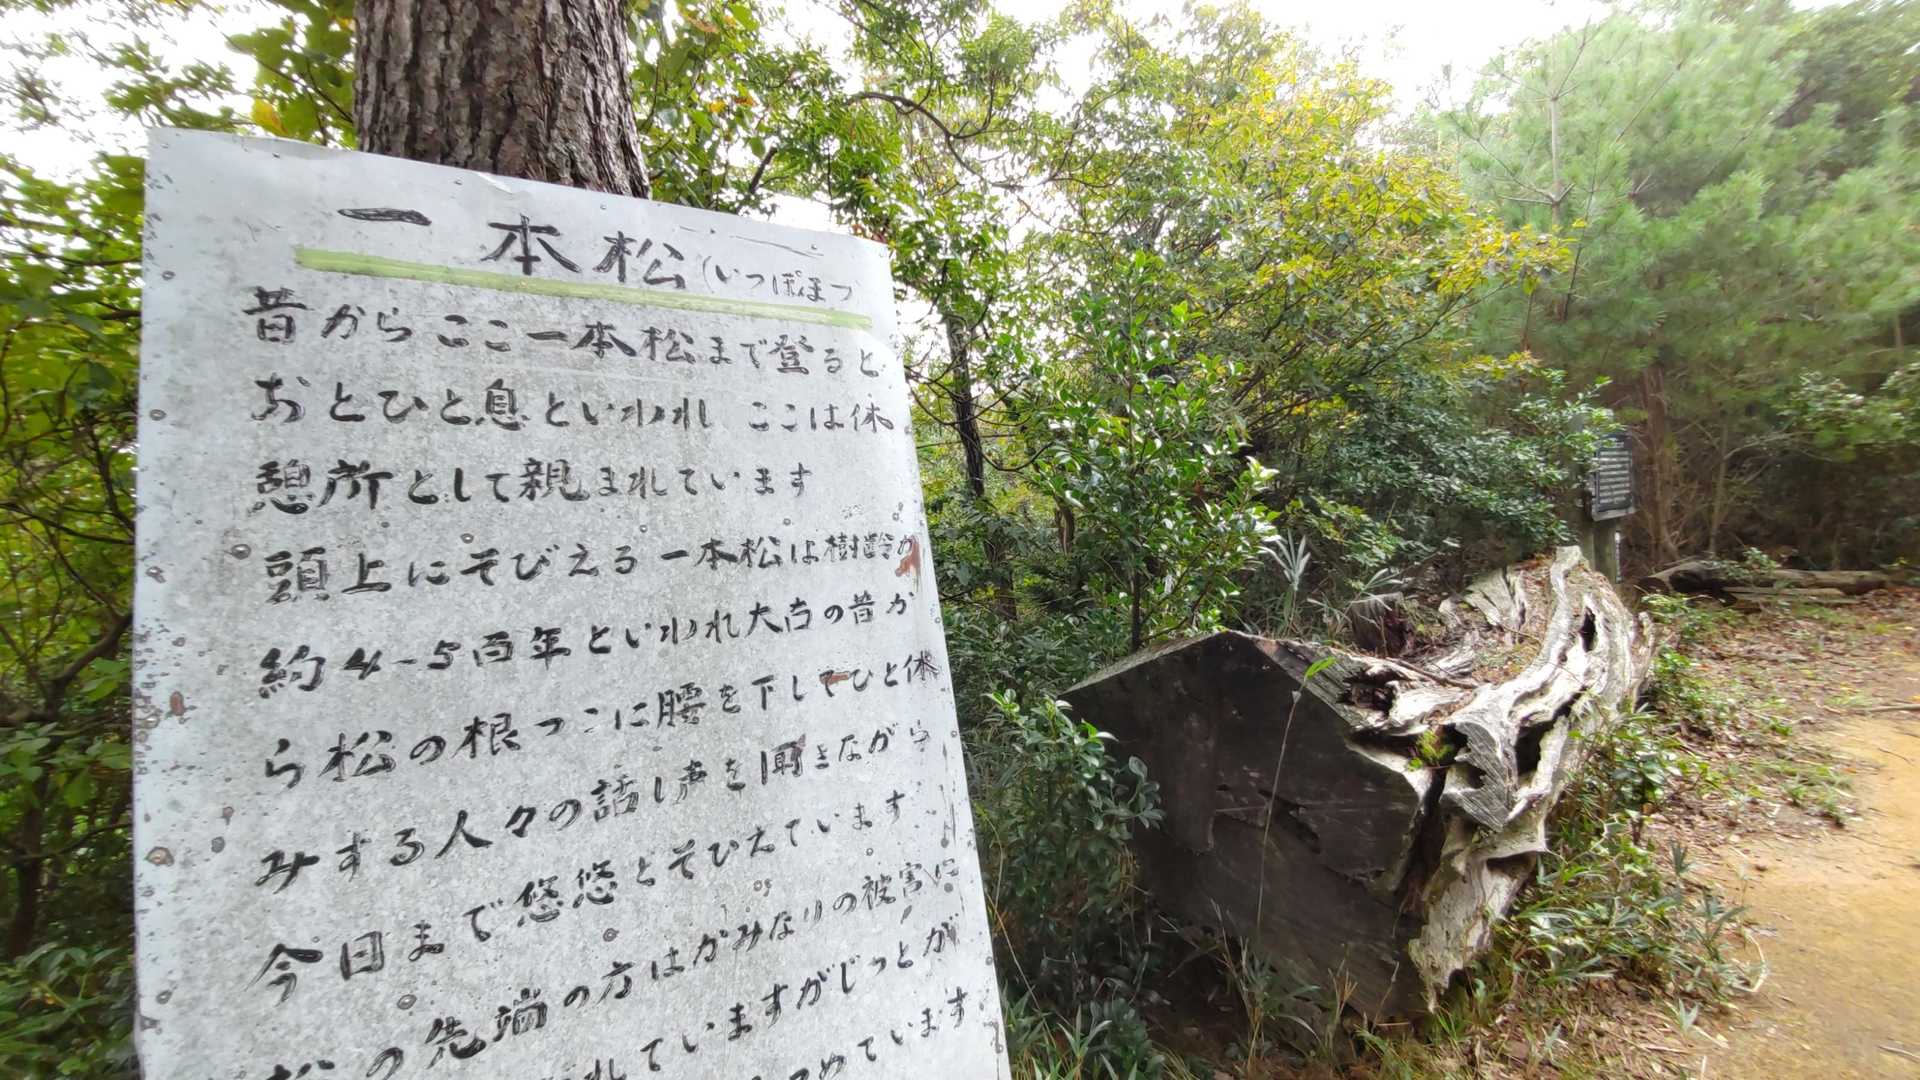 一本松（いっぽんまつ
昔からここ一本松まで登ると
おとひと息といわれ ここは休
憩所として親まれています
頭上にそびえる一本松は樹齢が
約4-5百年といわれ大古の昔か
ら松の根っこに腰を下してひと休
みする人々の話し声を聞きながら
今日まで悠悠とそびえています
松の先端の方はかみなりの被害に
れていますがじっとが
めています